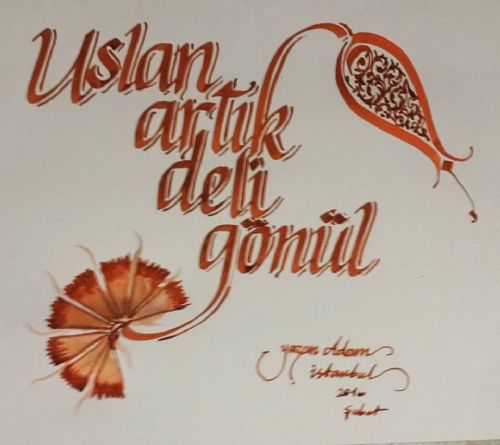 Uslan
artık
deli
gönül
yazan Adam
istanbul
2016
Şubat